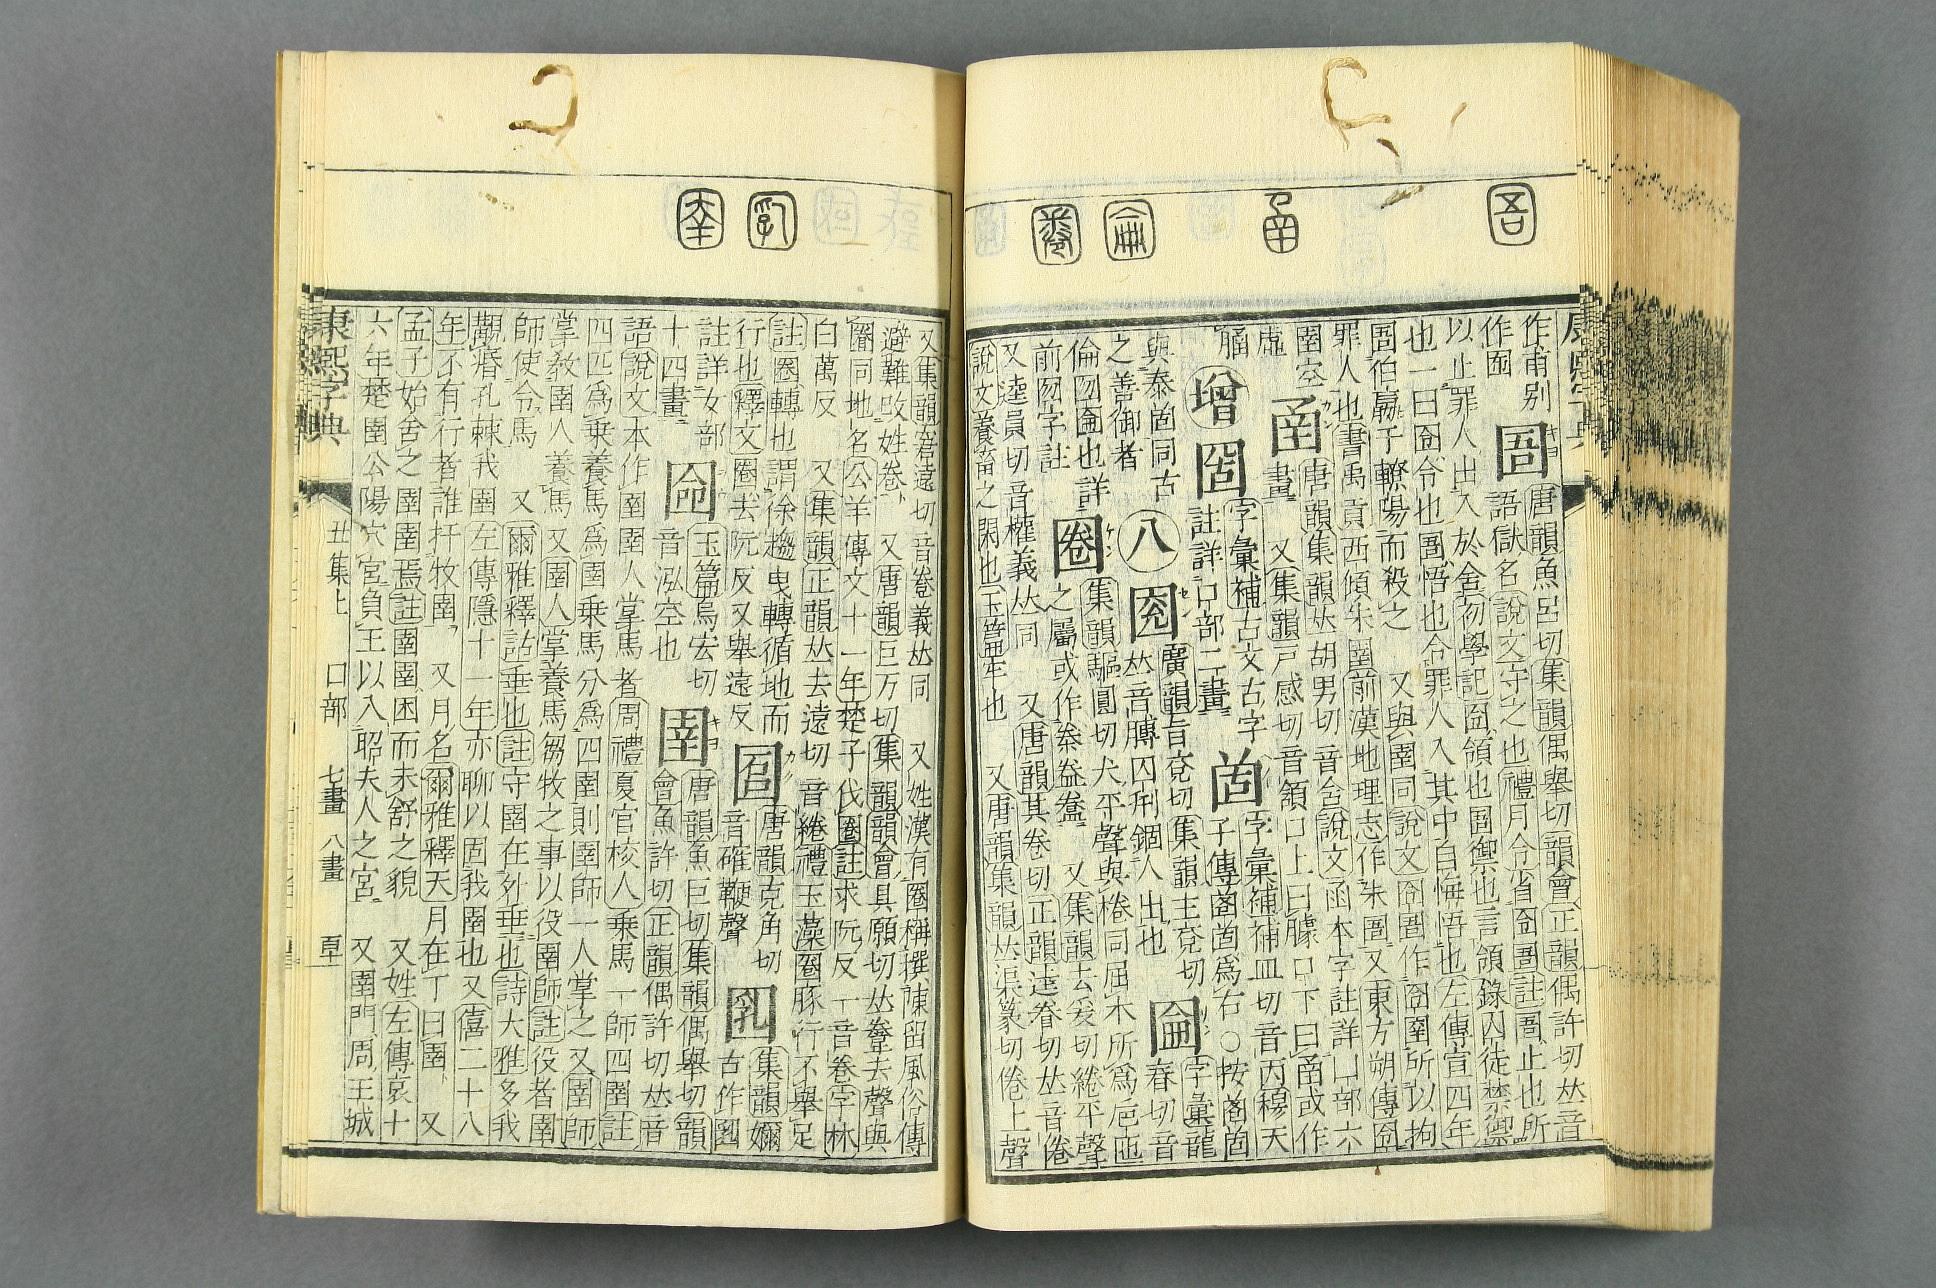 作甫别 圄 唐韻魚呂切集韻偶舉切韻會正韻偶許切𠀤音
作圃 語獄名說文守之也禮月令省囹圄註圄止也所
以止罪人出入於舍勿學記囹領也圄禦也言領錄囚徒禁禦
也一曰囹令也圄悟也令罪人入其中自悔悟也左傳宣四年
圄伯嬴于轑陽而殺之 又與圉同說文囹圄作囹圉所以拘
罪人也書禹貢西傾朱圉前漢地理志作朱圄又東方朔傳囹
圉空 圅 唐韻集韻𠀤胡男切音含說文函本字註詳凵部六
虛 畫 又集韻戸感切音頷口上曰臄口下曰圅或作
增 字彙補古文古字 字彙補補皿切音丙穆天
註詳口部二畫 子傳爲右○按
與泰同古 八 廣韻旨兗切集韻主兗切 圇 字彙龍
之善御者 𠀤音膞囚刑錮人出也 春切音
倫囫圇也詳 圈 集韻驅圓切犬平聲與棬同屈木所爲巵匜
前囫字註 之屬或作 又集韻去爰切綣平聲
又逵員切音權義𠀤同 又唐韻其卷切正韻逵眷切𠀤音倦
說文養畜之閑也玉篇牢也 又唐韻集韻𠀤渠篆切倦上聲
又集韻窘遠切音菤義𠀤同 又姓漢有圈稱撰陳留風俗傳
避難改姓卷 又唐韻臼万切集韻韻會具願切𠀤䅚去聲與
圏同地名公羊傳文十一年楚子伐圈註求阮反一音卷字林
臼萬反 又集韻正韻𠀤去遠切音綣禮玉藻圈豚行不舉足
註圈轉也謂徐趨曳轉循地而 唐韻克角切 集韻嬭
行也釋文圈去阮反又舉遠反 音確鞭聲 古作
註詳女部 玉篇烏宏切 圉 唐韻魚巨切集韻偶舉切韻
十四畫 音泓空也 會魚許切正韻偶許切𠀤音
語說文本作圉圉人掌馬者周禮夏官校人乘馬一師四圉註
四匹爲乘養馬爲圉乘馬分爲四圉則圉師一人掌之又圉師
掌敎圉人養馬又圉人掌養馬芻牧之事以役圉師註役者圉
師使令焉 又爾雅釋詁垂也註守圉在外垂也詩大雅多我
覯痻孔棘我圉左傳隱十一年亦聊以固我圉也又僖二十八
年不有行者誰扞牧圉 又月名爾雅釋天月在丁曰圉 又
孟子始舍之圉圉焉註圉圉困而未舒之貌 又姓左傳哀十
六年楚圉公陽穴宮負王以入昭夫人之宮 又圉門周王城
康熙字典 丑集上 口部 七畫 八畫